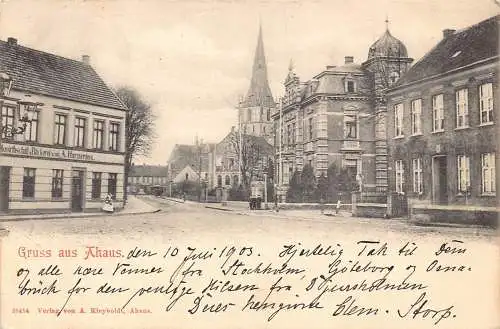 & Bäckerei von A.
Gruss aus Ahaus. den 10 Juli 1903. Hjertelig Tak til Dem
og alle kære Venner fra Stockholm, Göteborg og Osna-
brück for den venlige Hilsen fra D'Gjursholmen
Deres hengivne Clem. Storp.
Verlag von A. Kleyboldt, Ahaus.